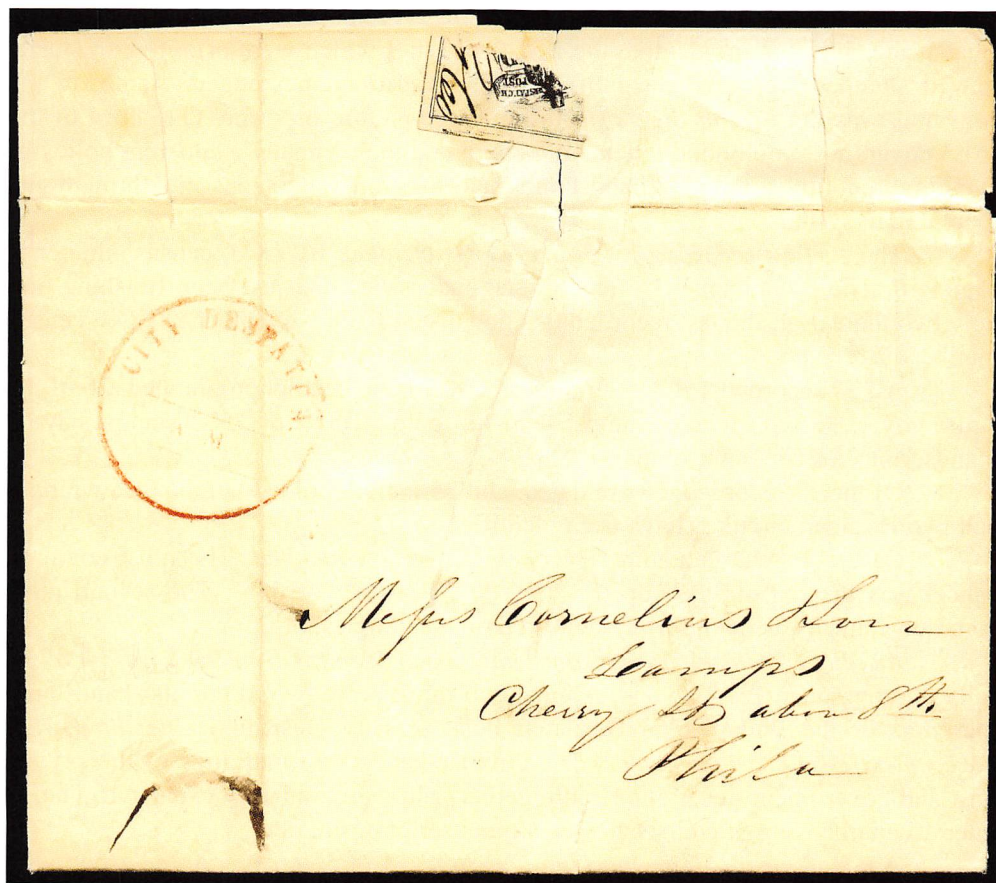 SPATCH
POST
CITY DESPATCH
Messrs Cornelius & Son
Lamps
Cherry St above 8th.
Phila